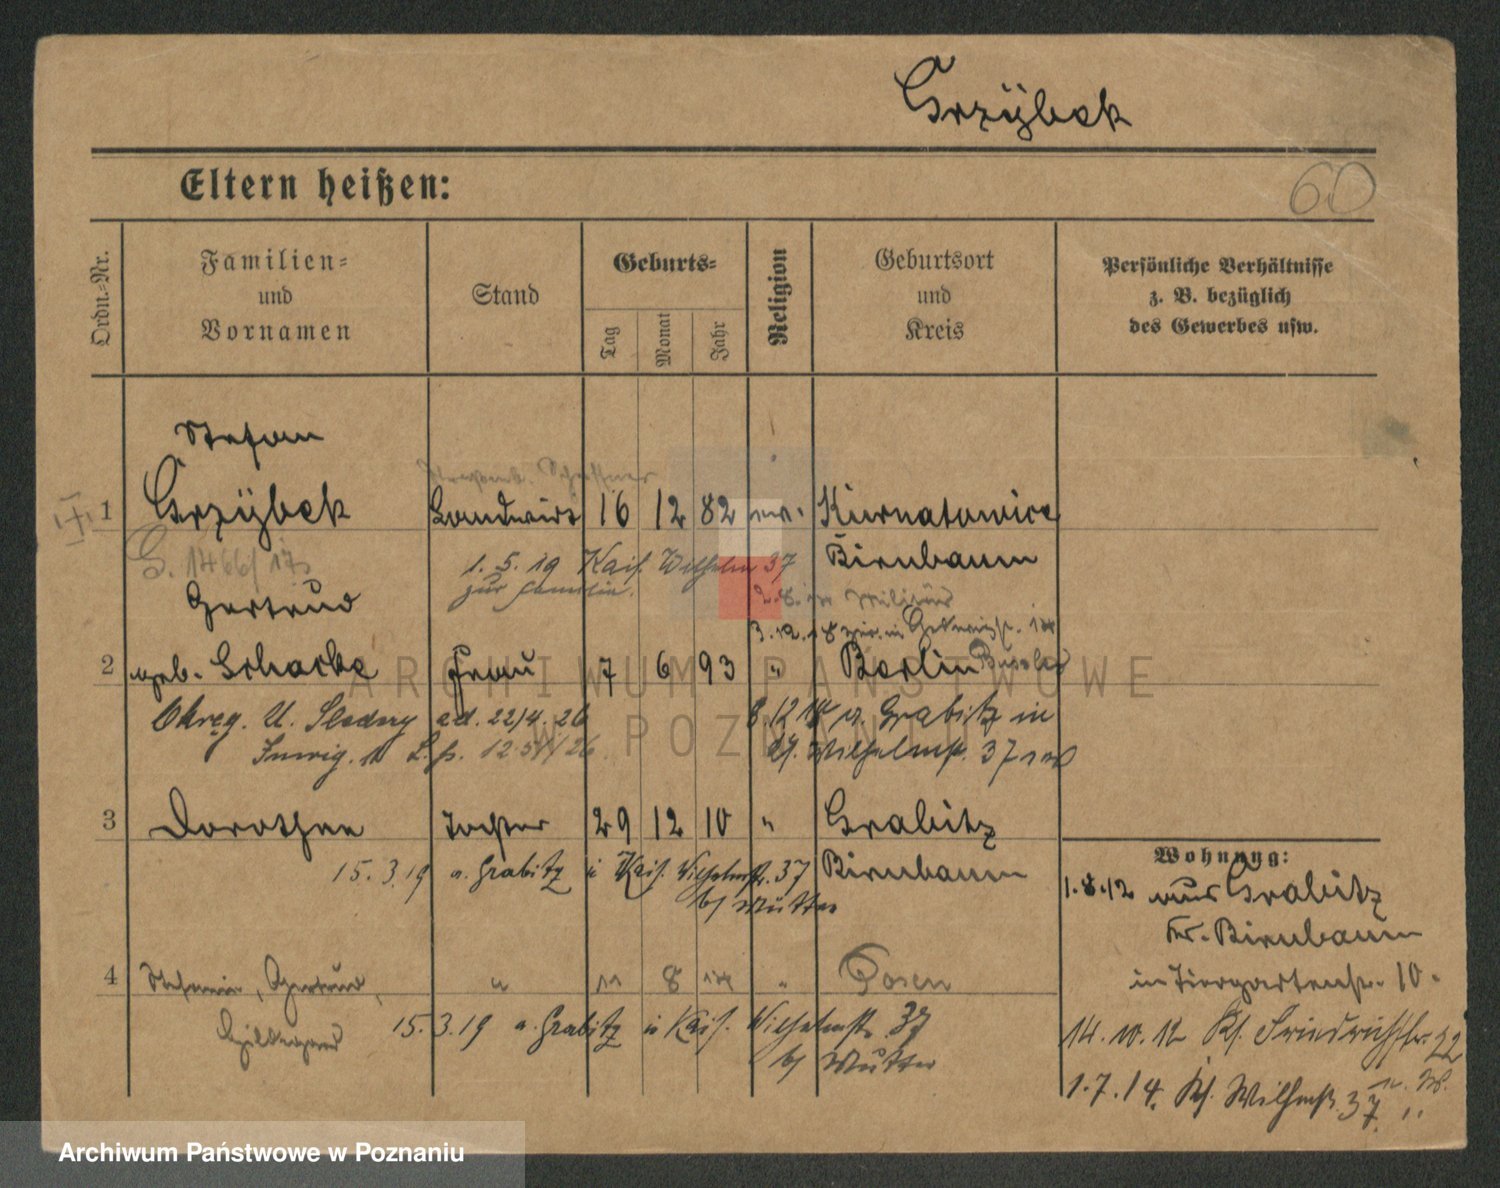 Grzÿbek
Eltern heißen:
60
Ordn.-Nr.
Familien-
und
Vornamen
Stand
Geburts-
Tag
Monat
Jahr
Religion
Geburtsort
und
Kreis
Persönliche Verhältnisse
z. B. bezüglich
des Gewerbes usw.
Stefan
1 Grzÿbek Landwirt 16 12 82 Kurnatowice
G. 1466/17 1. 5. 19 Kais. Wilhelm 37 Birnbaum
zur Familie.
Gertrud
2 geb. Scharbe Frau 7 6 93 " Berlin
Okręg. U. ad. 22/4. 26 8. 12 Grabitz in
Wilhelmst. 37
3 Dorothea Tochter 29 12 10 " Grabitz
15. 3. 19 a. Grabitz Kais. Wilhelmstr. 37 Birnbaum
b/ Mutter
Wohnung:
1. 8. 12 aus Grabitz
Kr. Birnbaum
in Tiergartenstr. 10.
4 Gertrud, " 11 8 14 " Posen
Hildegard 15. 3. 19 a. Grabitz Kais. Wilhelmstr. 37
b/ Mutter
14. 10. 12 Friedrichstr. 22
1. 7. 14. Wilhmstr. 37
ARCHIWUM PAŃSTWOWE
W POZNANIU
Archiwum Państwowe w Poznaniu